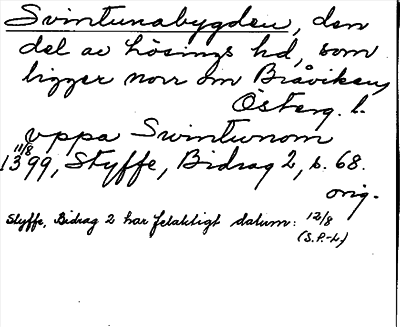 Svintunabygden, den
del av Lösings hd, som
ligger norr om Bråviken,
Österg. l.
vppa Swintunom
11/8
1399, Styffe, Bidrag 2, s. 68.
orig.
Styffe, Bidrag 2 har felaktigt datum: 12/8
(S.P.-L)